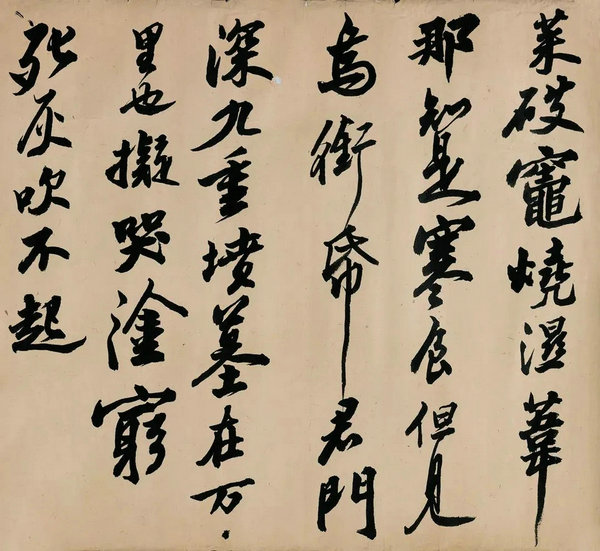 菜破竈燒濕葦
那知是寒食但見
烏銜帋君門
深九重墳墓在万
里也擬哭塗窮
死灰吹不起